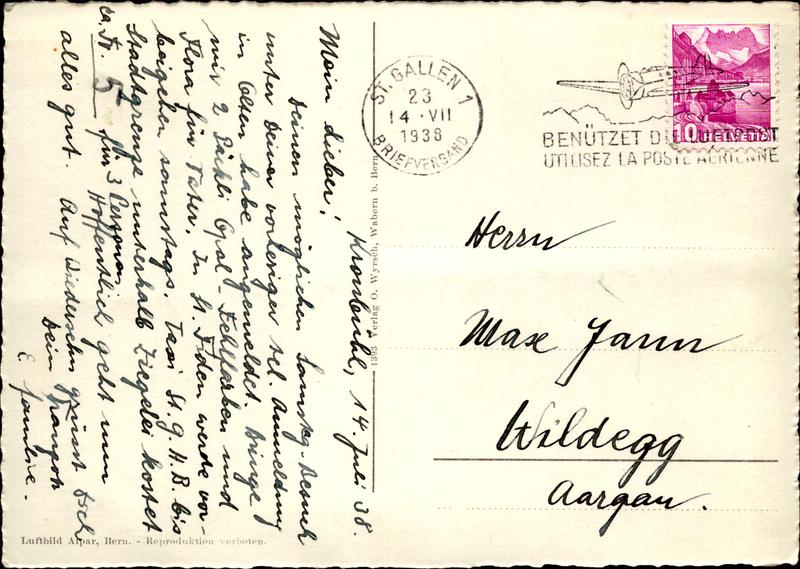 Kronbühl, 14. Juli 38.
Mein lieber!
Deinen möglichen Samstag-Besuch
unter Deiner vorheriger tel. Anmeldung
in Olten habe angemeldet. Bringe
mir 2 Päckli Opal- und
Flora für Vater. In St. Fiden werde vor-
beigehen samstags. Taxi St. G. H. B. bis
Stadtgrenze unterhalb Ziegelei kostet
ca. Fr. 5.- für 3 Personen.
Hoffentlich geht nun
alles gut. Auf Wiedersehn grüsst Dich
Dein
& Familie.
Luftbild Alpar, Bern. - Reproduktion verboten.
1393 Verlag O. Wyrsch, Wabern b. Bern
ST. GALLEN 1
23
14.VII
1938
BRIEFVERSAND
BENÜTZET DIE LUFTPOST
UTILISEZ LA POSTE AÉRIENNE
10 HELVETIA
Herrn
Max Jann
Wildegg
Aargau.